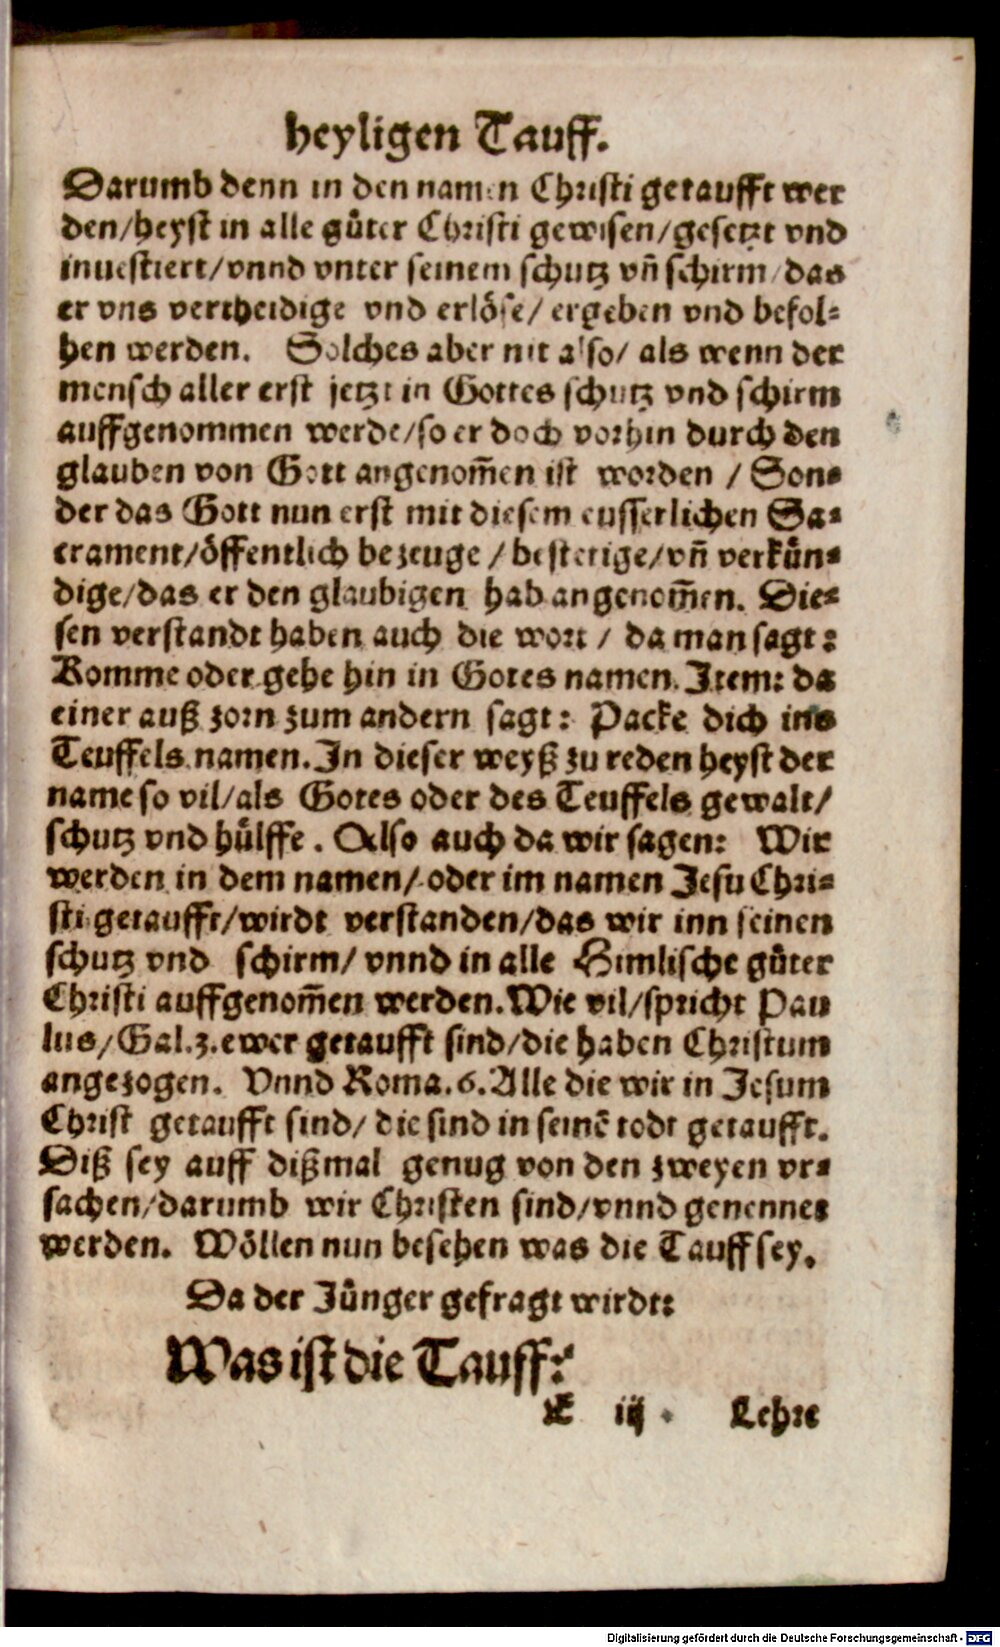 heyligen Tauff.
Darumb denn in den namen Christi getaufft wer
den/heyst in alle gůter Christi gewisen/gesetzt vnd
inuestiert/vnnd vnter seinem schutz vñ schirm/das
er vns vertheidige vnd erlöse/ ergeben vnd befol⸗
hen werden. Solches aber nit also/ als wenn der
mensch aller erst jetzt in Gottes schutz vnd schirm
auffgenommen werde/so er doch vorhin durch den
glauben von Gott angenom̃en ist worden / Son⸗
der das Gott nun erst mit diesem eusserlichen Sa⸗
crament/öffentlich bezeuge / bestetige/vñ verkün⸗
dige/das er den glaubigen hab angenom̃en. Die⸗
sen verstandt haben auch die wort / da man sagt:
Komme oder gehe hin in Gotes namen. Item: da
einer auß zorn zum andern sagt: Packe dich ins
Teuffels namen. In dieser weyß zu reden heyst der
name so vil/als Gotes oder des Teuffels gewalt/
schutz vnd hülffe. Also auch da wir sagen: Wir
werden in dem namen/ oder im namen Jesu Chri⸗
sti getaufft/wirdt verstanden/das wir inn seinen
schutz vnd schirm/ vnnd in alle Himlische gůter
Christi auffgenom̃en werden. Wie vil/spricht Pau
lus/Gal.3.ewer getaufft sind/die haben Christum
angezogen. Vnnd Roma.6. Alle die wir in Jesum
Christ getaufft sind/ die sind in seinẽ todt getaufft.
Diß sey auff dißmal genug von den zweyen vr⸗
sachen/darumb wir Christen sind/vnnd genennet
werden. Wöllen nun besehen was die Tauff sey.
Da der Jünger gefragt wirdt:
Was ist die Tauff?
iij Lehre
Digitalisierung gefördert durch die Deutsche Forschungsgemeinschaft - DFG